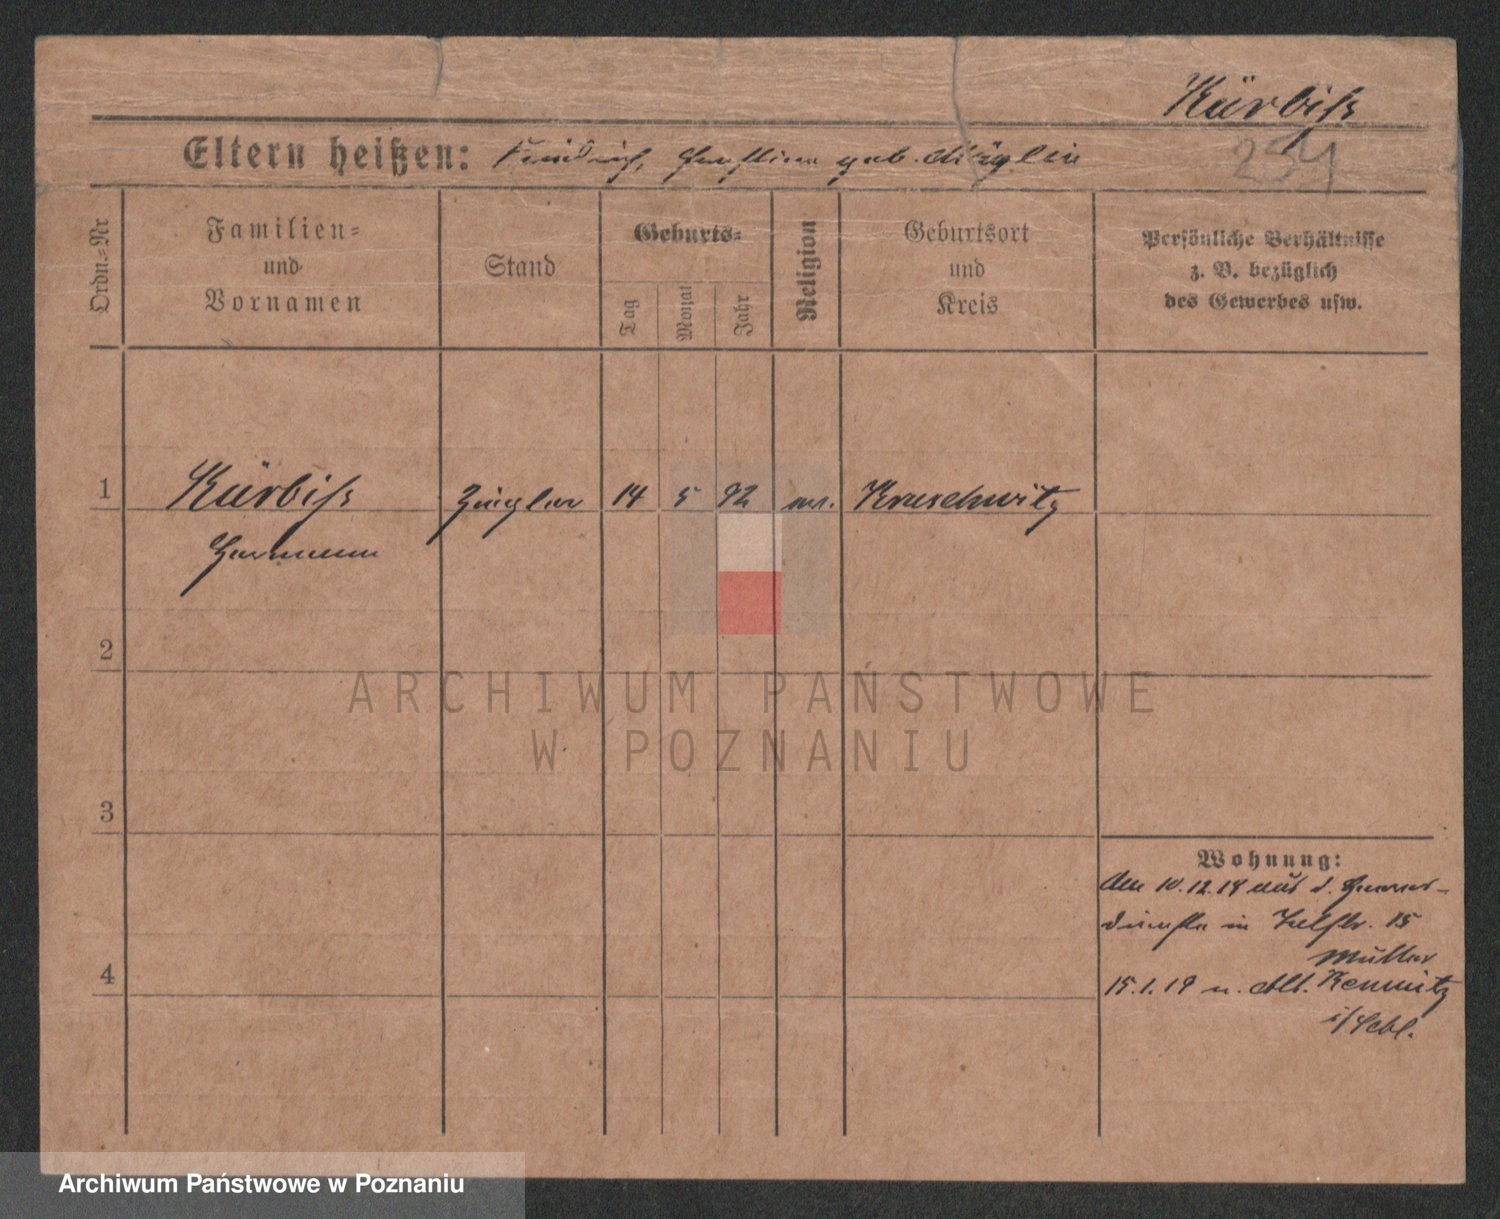 Kürbiß
Eltern heißen: Friedrich, geb.
254
Ordn.=Nr
Familien=
und
Vornamen
Stand
Geburts=
Tag
Monat
Jahr
Religion
Geburtsort
und
Kreis
Persönliche Verhältnisse
z. B. bezüglich
des Gewerbes usw.
1 Kürbiß Ziegler 14 5 92 ev. Kruschwitz
Hermann
2
3
4
Wohnung:
Am 10.12.18 aus d. Heeres-
dienste in 15
Müller
15.1.19 n. Alt. Kemnitz
i/Schl.
ARCHIWUM PAŃSTWOWE
W POZNANIU
Archiwum Państwowe w Poznaniu